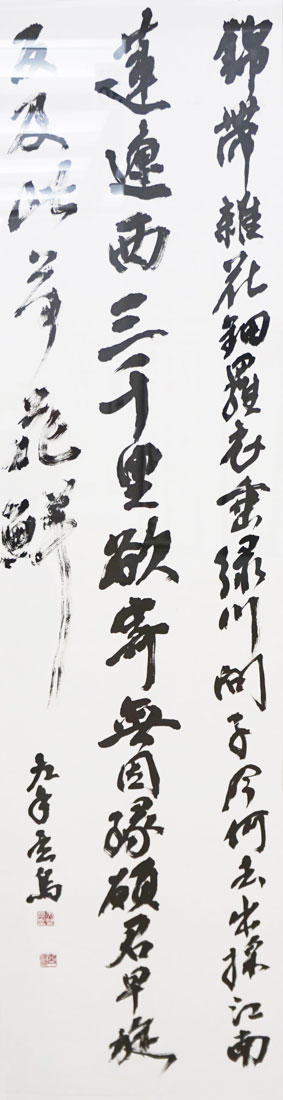 錦帶雜花鈿羅衣垂綠川問子今何去出採江南
蓮遼西三千里欲寄無因緣願君早旋
反及此荷花鮮